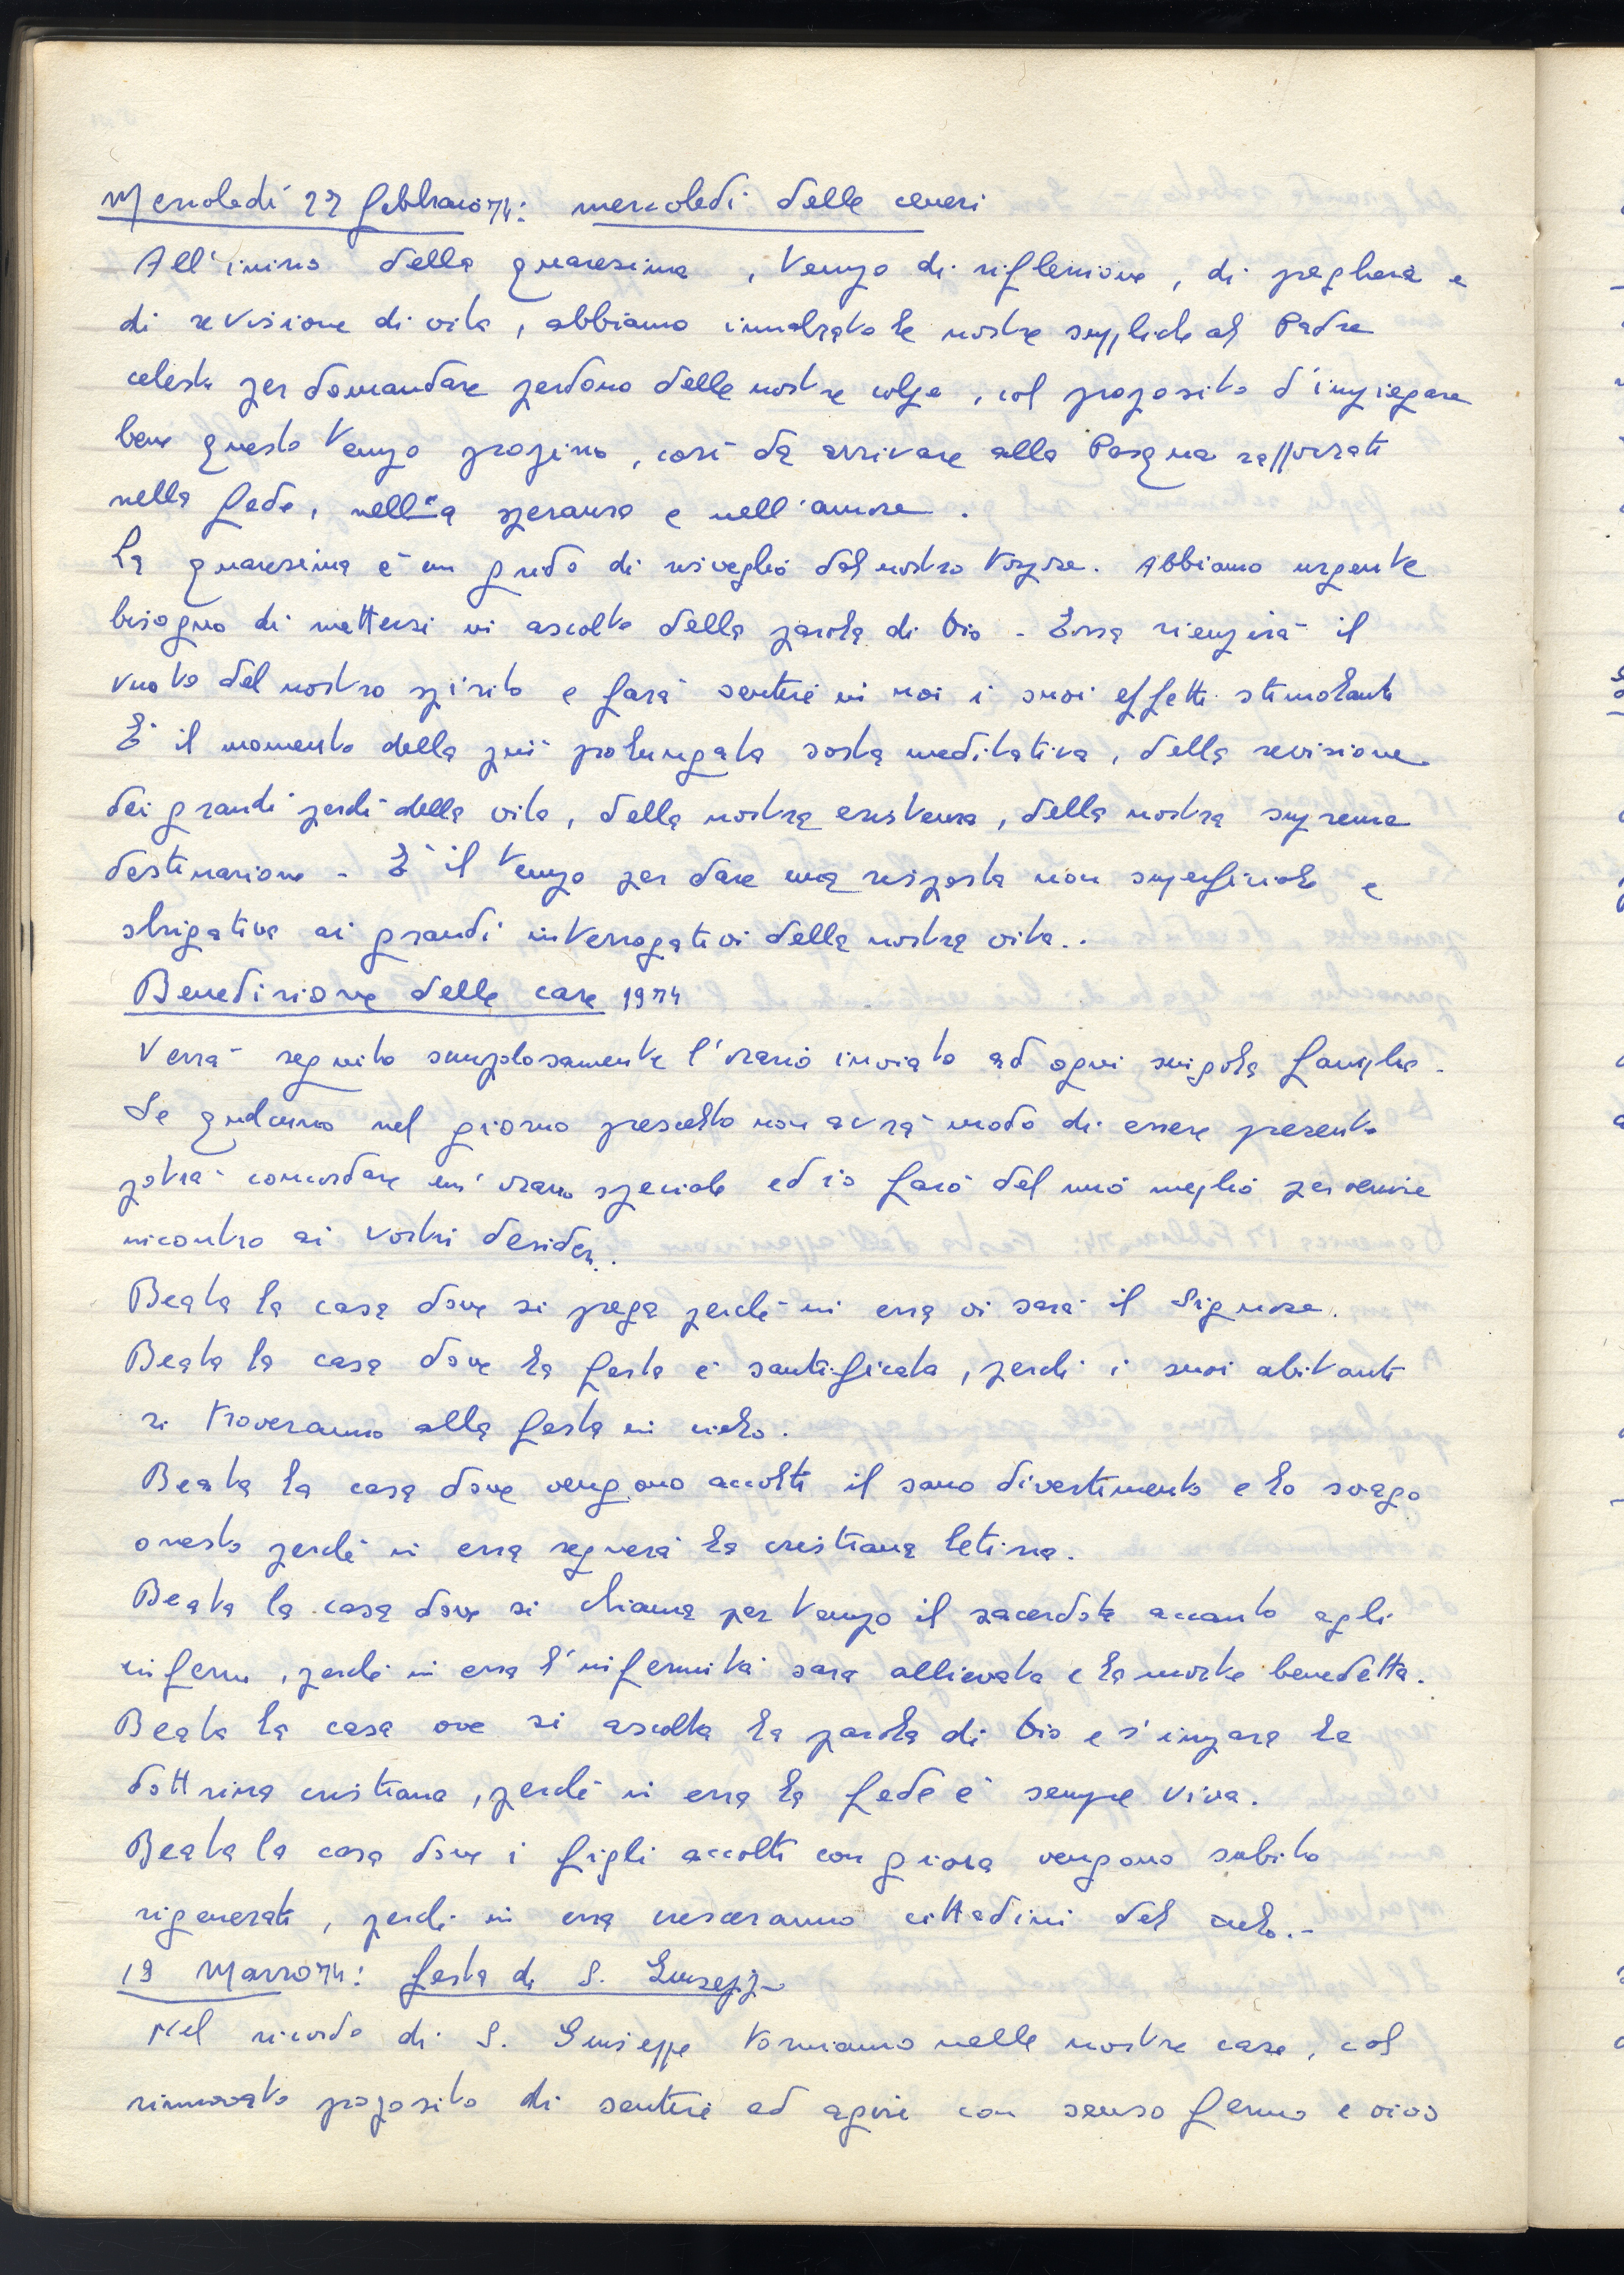 Mercoledì 27 febbraio 74: mercoledì delle ceneri
All'inizio della quaresima, tempo di riflessione, di preghiera e
di revisione di vita, abbiamo innalzato le nostre suppliche al Padre
celeste per domandare perdono delle nostre colpe, col proposito d'impiegare
bene questo tempo propizio, così da arrivare alla Pasqua rafforzati
nella fede, nella speranza e nell'amore.
La quaresima è un grido di risveglio dal nostro torpore. Abbiamo urgente
bisogno di metterci in ascolto della parola di Dio - Essa riempirà il
vuoto del nostro spirito e farà sentire in noi i suoi effetti stimolanti
È il momento della più prolungata sosta meditativa, della revisione
dei grandi perché della vita, della nostra esistenza, della nostra suprema
destinazione - È il tempo per dare una risposta non superficiale e
sbrigativa ai grandi interrogativi della nostra vita..
Benedizione delle case 1974
Verrà seguito scrupolosamente l'orario inviato ad ogni singola famiglia.
Se qualcuno nel giorno prescelto non avrà modo di essere presente
potrà concordare un'orario speciale ed io farò del mio meglio per venire
incontro ai vostri desideri.
Beata la casa dove si prega perché in essa vi sarà il Signore.
Beata la casa dove la festa è santificata, perché i suoi abitanti
si troveranno alla festa in cielo.
Beata la casa dove vengono accolti il sano divertimento e lo svago
onesto perché in essa regnerà la cristiana letizia.
Beata la casa dove si chiama per tempo il sacerdote accanto agli
infermi, perché in essa l'infermità sarà allievata e la morte benedetta.
Beata la casa ove si ascolta la parola di Dio e s'impara la
dottrina cristiana, perché in essa la fede è sempre viva.
Beata la casa dove i figli accolti con gioia vengono subito
rigenerati, perché in essa cresceranno cittadini del cielo.-
19 Marzo 74: festa di S. Giuseppe
Nel ricordo di S. Giuseppe torniamo nelle nostre case, col
rinnovato proposito di sentire ed agire con senso fermo e vivo